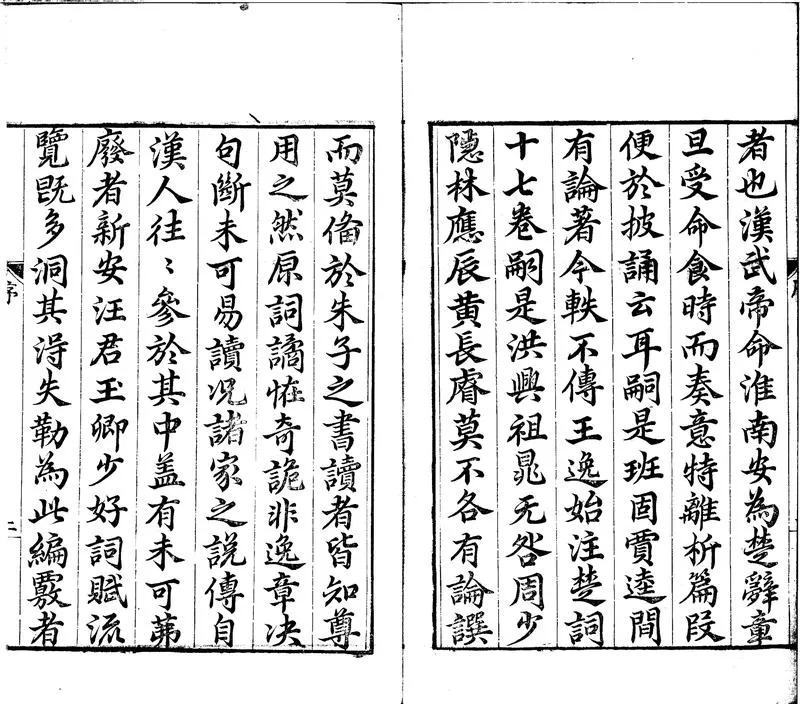 者也漢武帝命淮南安為楚辭章
旦受命食時而奏意特離析篇段
便於披誦云耳嗣是班固賈逵間
有論著今軼不傳王逸始注楚詞
十七卷嗣是洪興祖晁无咎周少
隠林應辰黄長睿莫不各有論譔
而莫俻於朱子之書讀者皆知尊
用之然原詞譎恠奇詭非逸章决
句斷未可易讀况諸家之說傳自
漢人往〻參於其中盖有未可苐
廢者新安汪君玉卿少好詞賦流
覽既多洞其淂失勒為此編覈者
序
二